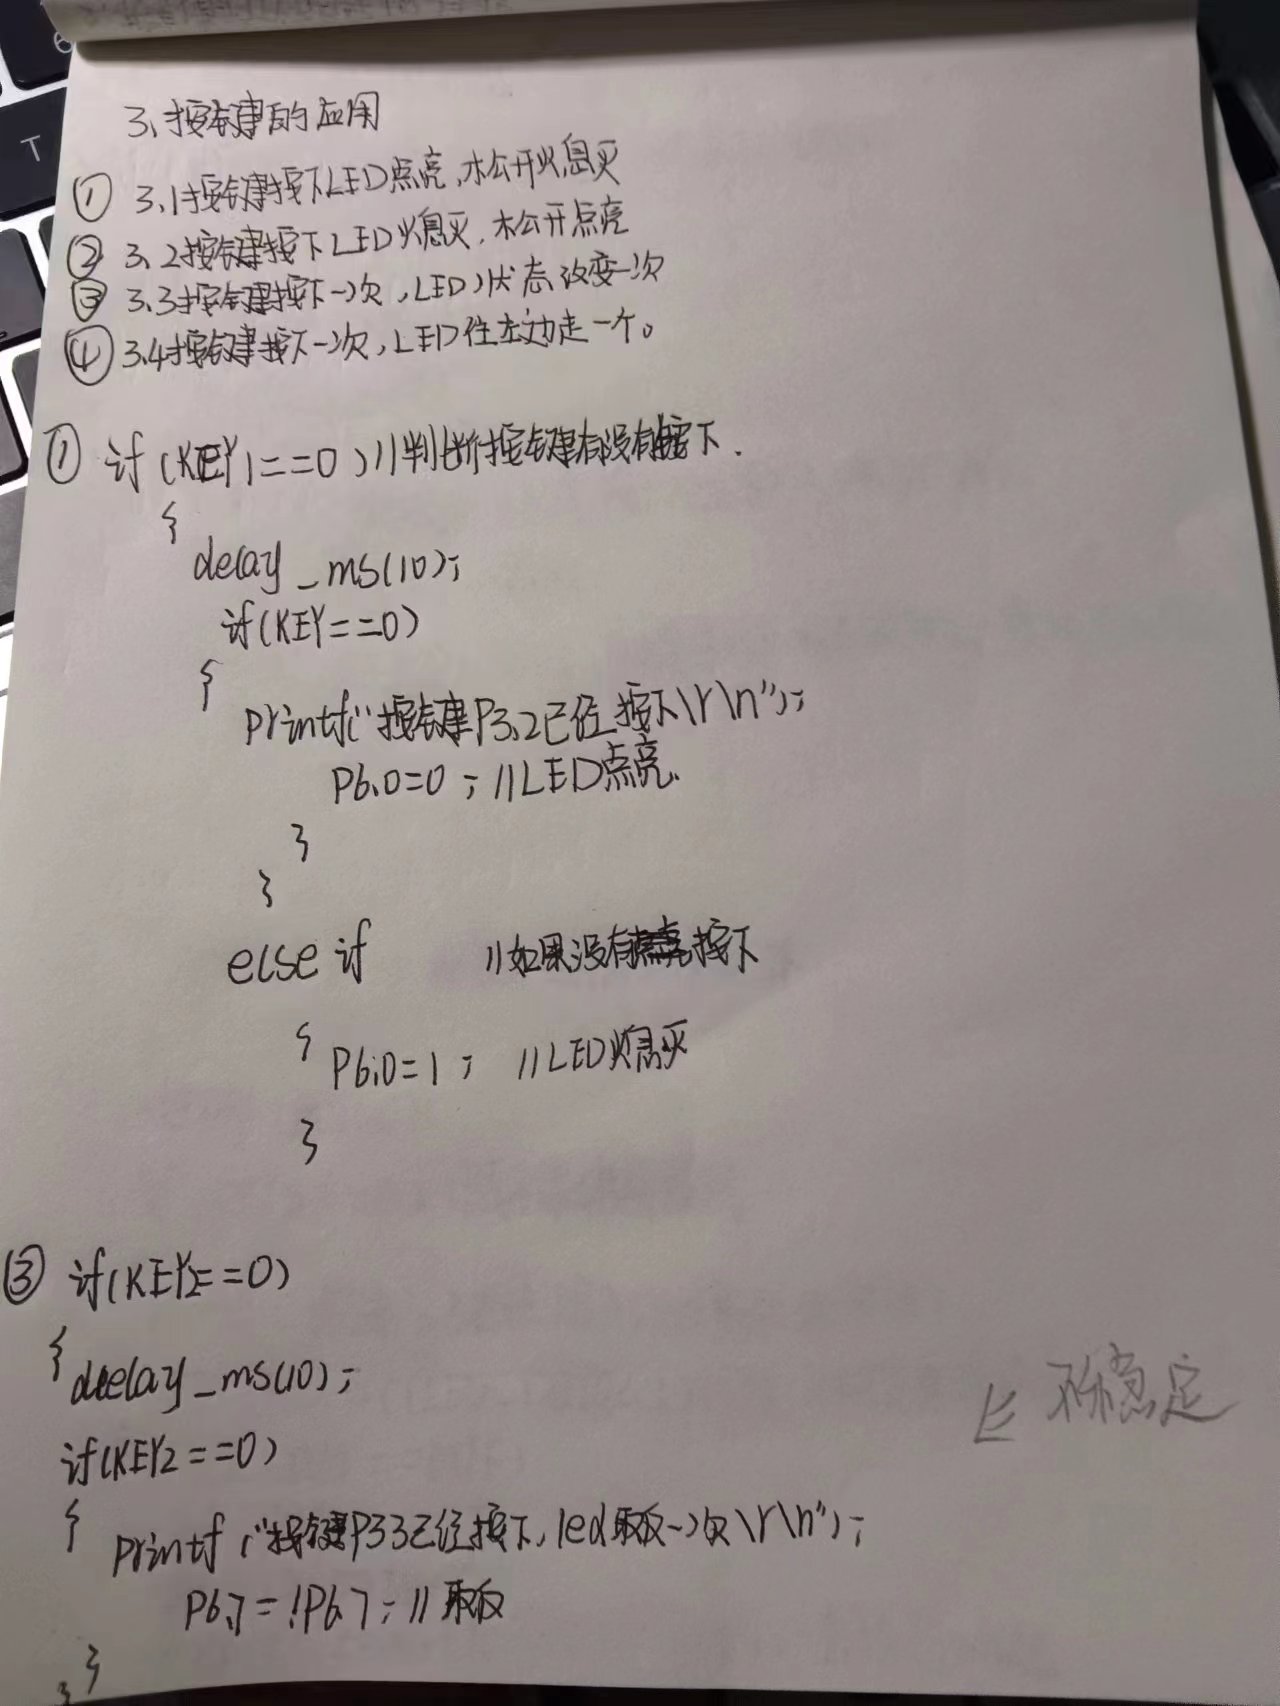 3、按键的应用
① 3.1按键按下LED点亮,松开熄灭
② 3.2按键按下LED熄灭,松开点亮
③ 3.3按键按下一次,LED状态改变一次
④ 3.4按键按下一次,LED往左边走一个。
① if(KEY1==0)//判断按键有没有按下.
{
delay_ms(10);
if(KEY==0)
{
printf("按键P3.2已经按下\r\n");
P6.0=0;//LED点亮.
}
}
else if //如果没有按下
{
P6.0=1; //LED熄灭
}
③ if(KEY2==0)
{
delay_ms(10);
不稳定
if(KEY2==0)
{
printf("按键P33已经按下,led取反一次\r\n");
P6.7=!P6.7;//取反
}
}